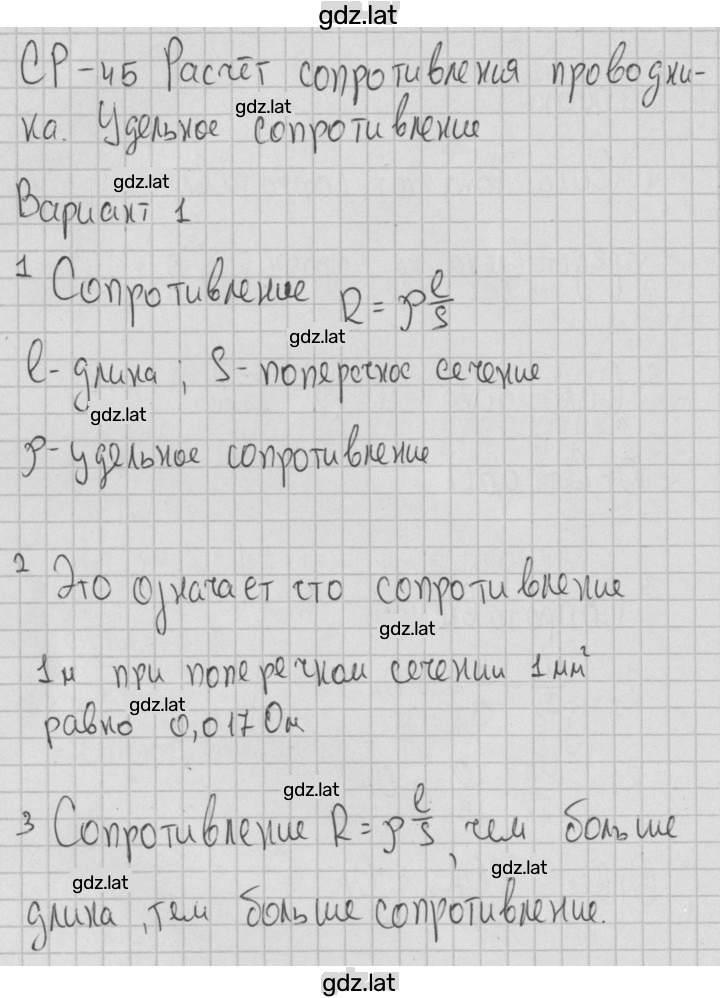 gdz.lat
СР-45 Расчёт сопротивления проводни-
gdz.lat
ка. Удельное сопротивление
gdz.lat
Вариант 1
1 Сопротивление R = ρ l/S
gdz.lat
l - длина ; S - поперечное сечение
gdz.lat
ρ - удельное сопротивление
2 Это означает что сопротивление
gdz.lat
1м при поперечном сечении 1 мм²
gdz.lat
равно 0,017 Ом
gdz.lat
3 Сопротивление R = ρ l/S, чем больше
gdz.lat
gdz.lat
длина, тем больше сопротивление.
gdz.lat